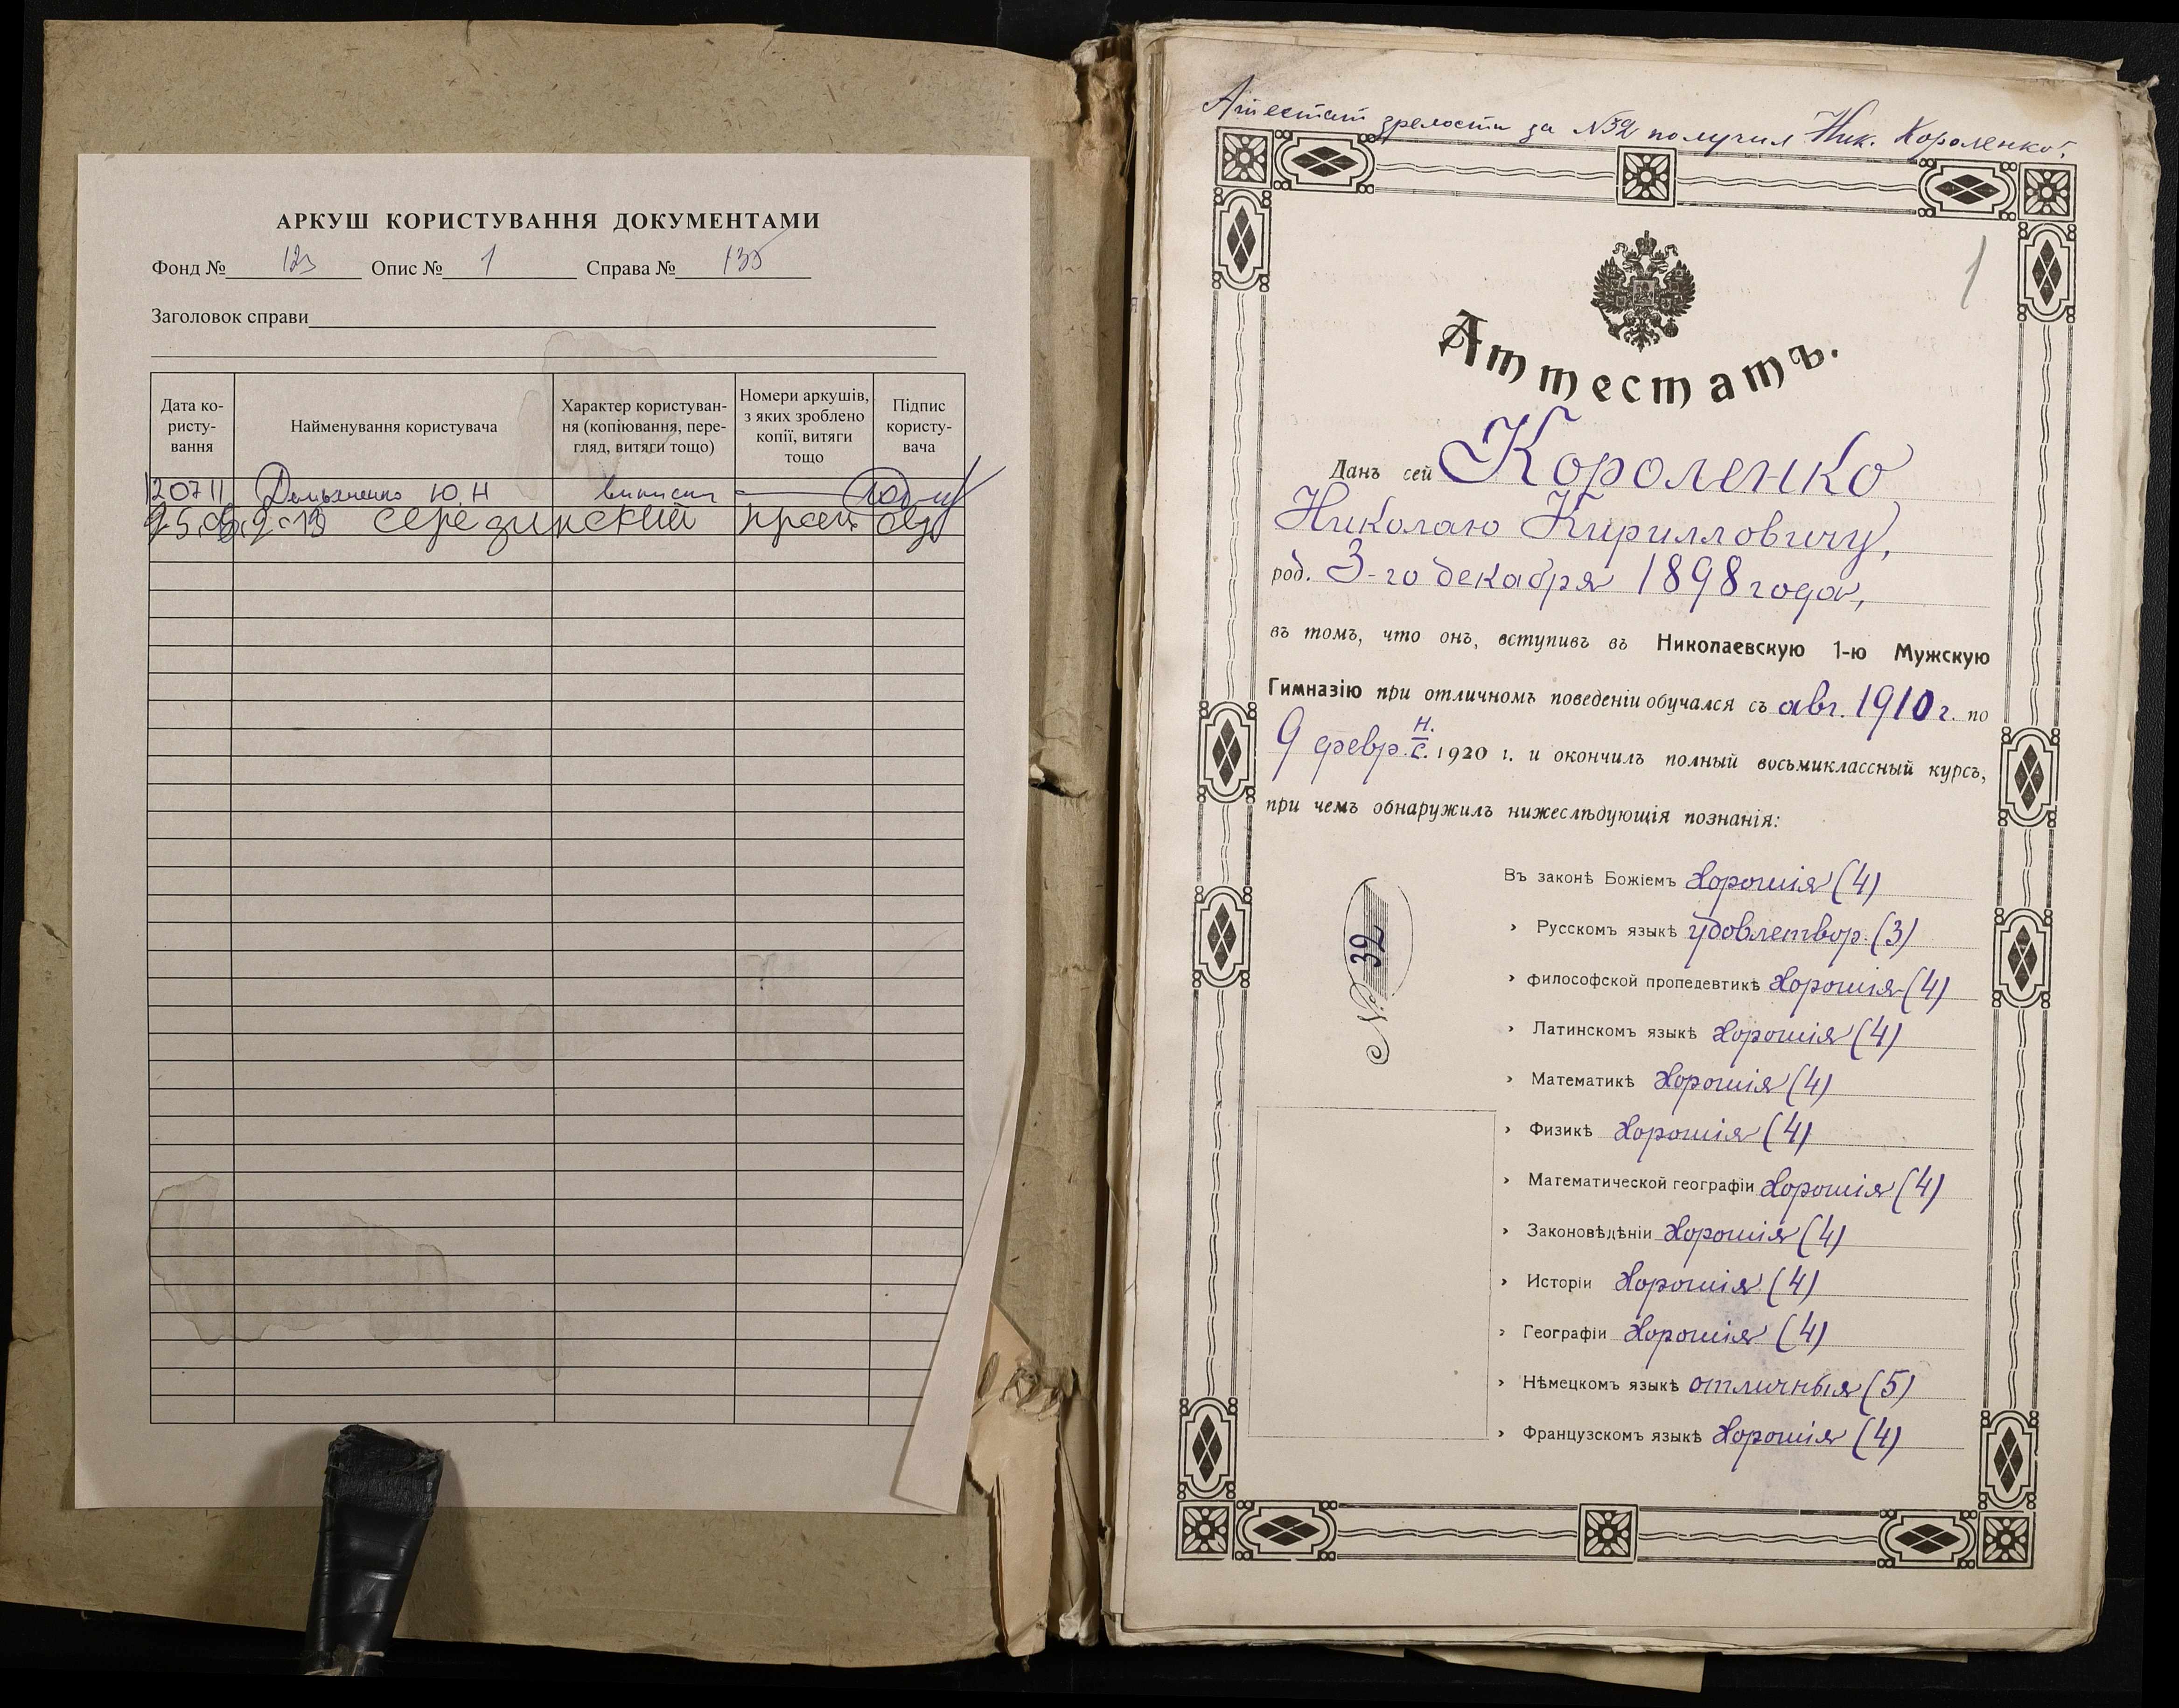 АРКУШ КОРИСТУВАННЯ ДОКУМЕНТАМИ
Фонд № 123 Опис № 1 Справа № 135
Заголовок справи
Дата ко-
ристу-
вання
Найменування користувача
Характер користуван-
ня (копіювання, пере-
гляд, витяги тощо)
Номери аркушів,
з яких зроблено
копії, витяги
тощо
Підпис
користу-
вача
12 07 11 Ю.Н
Серединский
Аттестат зрелости за №32 получил Ник. Короленко.
1
Аттестатъ.
Данъ сей Короленко
Николаю Кирилловичу,
род. 3-го декабря 1898 года,
въ томъ, что онъ, вступивъ въ Николаевскую 1-ю Мужскую
Гимназію при отличномъ поведеніи обучался съ авг. 1910 г. по
9 февр. н. с. 1920 г. и окончилъ полный восьмиклассный курсъ,
при чемъ обнаружилъ нижеслѣдующія познанія:
№ 32
Въ законѣ Божіемъ хорошія (4)
› Русскомъ языкѣ удовлетвор. (3)
› философской пропедевтикѣ хорошія (4)
› Латинскомъ языкѣ хорошія (4)
› Математикѣ хорошія (4)
› Физикѣ хорошія (4)
› Математической географіи хорошія (4)
› Законовѣдѣніи хорошія (4)
› Исторіи хорошія (4)
› Географіи хорошія (4)
› Нѣмецкомъ языкѣ отличныя (5)
› Французскомъ языкѣ хорошія (4)